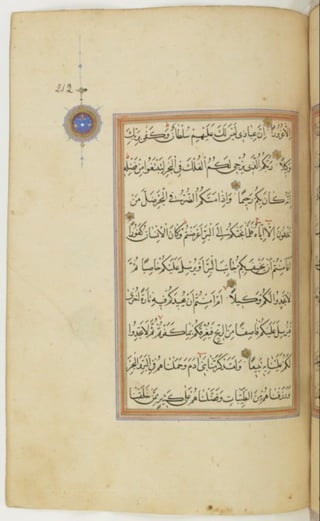 212
إلا غرورا إن عبادي ليس لك عليهم سلطان وكفى بربك
وكيلا ربكم الذي يزجي لكم الفلك في البحر لتبتغوا من فضله
إنه كان بكم رحيما وإذا مسكم الضر في البحر ضل من
تدعون إلا إياه فلما نجاكم إلى البر أعرضتم وكان الإنسان كفورا
أفأمنتم أن يخسف بكم جانب البر أو يرسل عليكم حاصبا ثم
لا تجدوا لكم وكيلا أم أمنتم أن يعيدكم فيه تارة أخرى
فيرسل عليكم قاصفا من الريح فيغرقكم بما كفرتم ثم لا تجدوا
لكم علينا به تبيعا ولقد كرمنا بني آدم وحملناهم في البر والبحر
ورزقناهم من الطيبات وفضلناهم على كثير ممن خلقنا